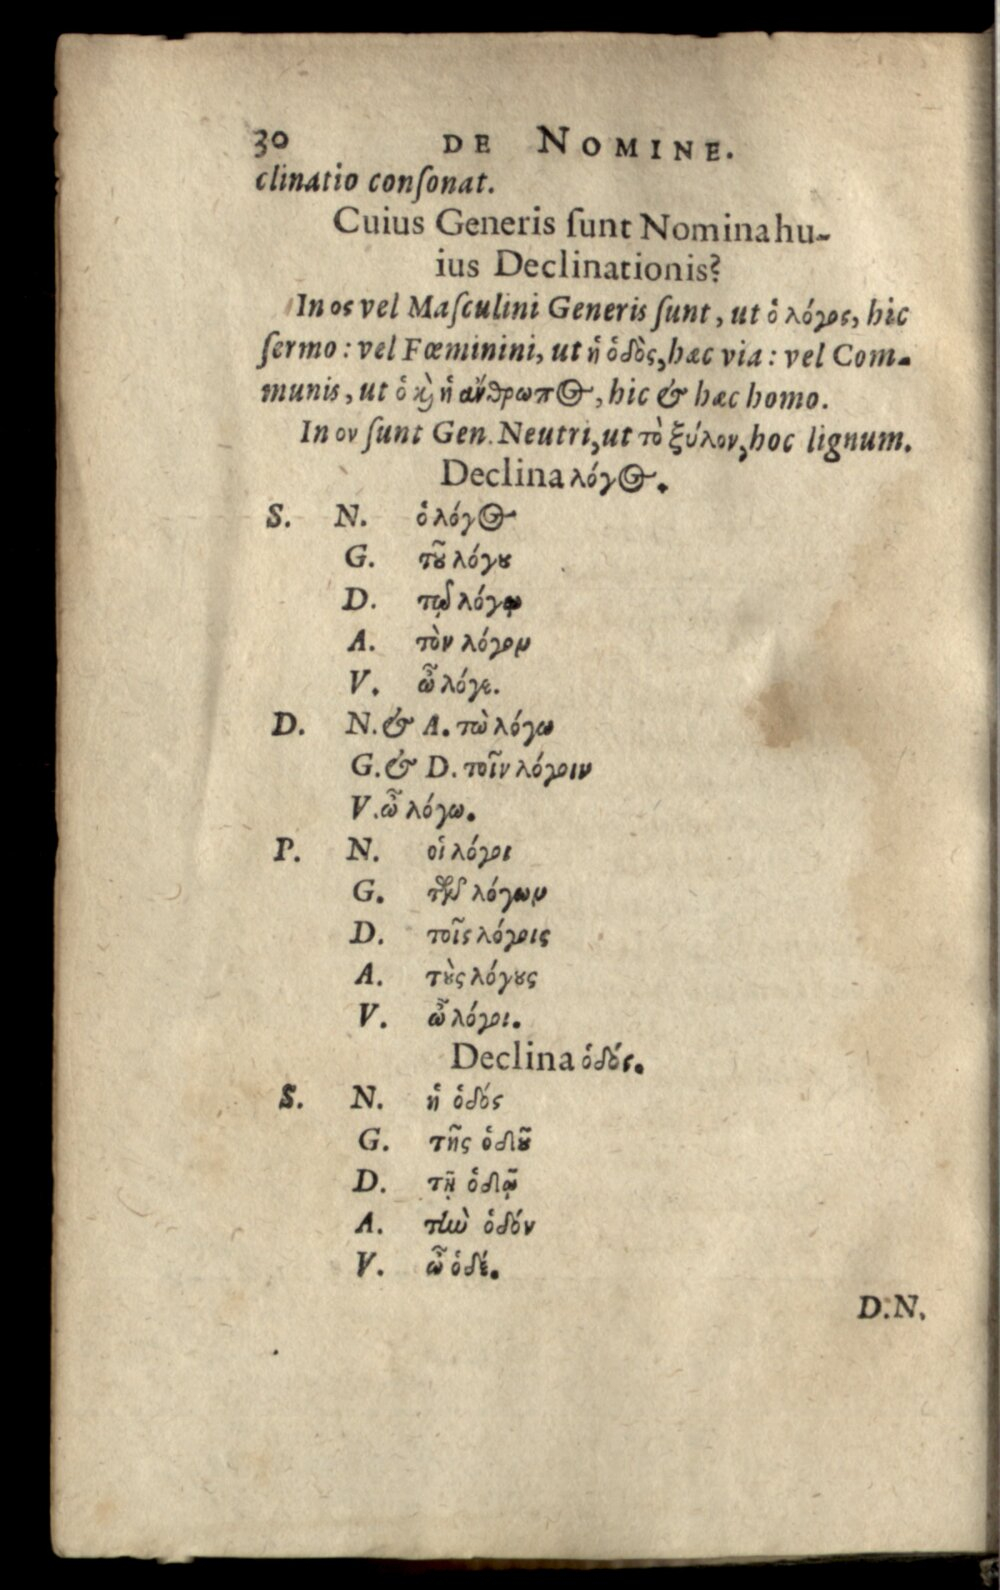 30 DE NOMINE.
clinatio conſonat.
Cuius Generis ſunt Nomina hu-
ius Declinationis?
In ος vel Maſculini Generis ſunt, ut ὁ λόγος, hic
ſermo: vel Fœminini, ut ἡ ὁδὸς, hæc via: vel Com-
munis, ut ὁ ϗ̀ ἡ ἄνθρωπος, hic & hæc homo.
In ον ſunt Gen. Neutri, ut τὸ ξύλον, hoc lignum.
Declina λόγος.
S. N. ὁ λόγος
G. τȣ͂ λόγȣ
D. τῷ λόγῳ
A. τὸν λόγον
V. ὦ λόγε.
D. N. & A. τὼ λόγω
G. & D. τοῖν λόγοιν
V. ὦ λόγω.
P. N. οἱ λόγοι
G. τῶν λόγων
D. τοῖς λόγοις
A. τȣ̀ς λόγȣς
V. ὦ λόγοι.
Declina ὁδός.
S. N. ἡ ὁδός
G. τῆς ὁδȣ͂
D. τῇ ὁδῷ
A. τὴν ὁδόν
V. ὦ ὁδέ.
D.N.